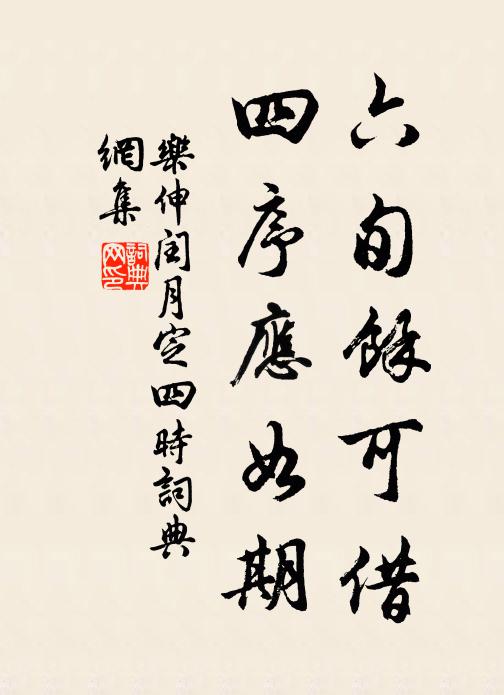 六旬餘可借
四序應如期
樂伸閏月定四時詞典
網集
詞典
網印